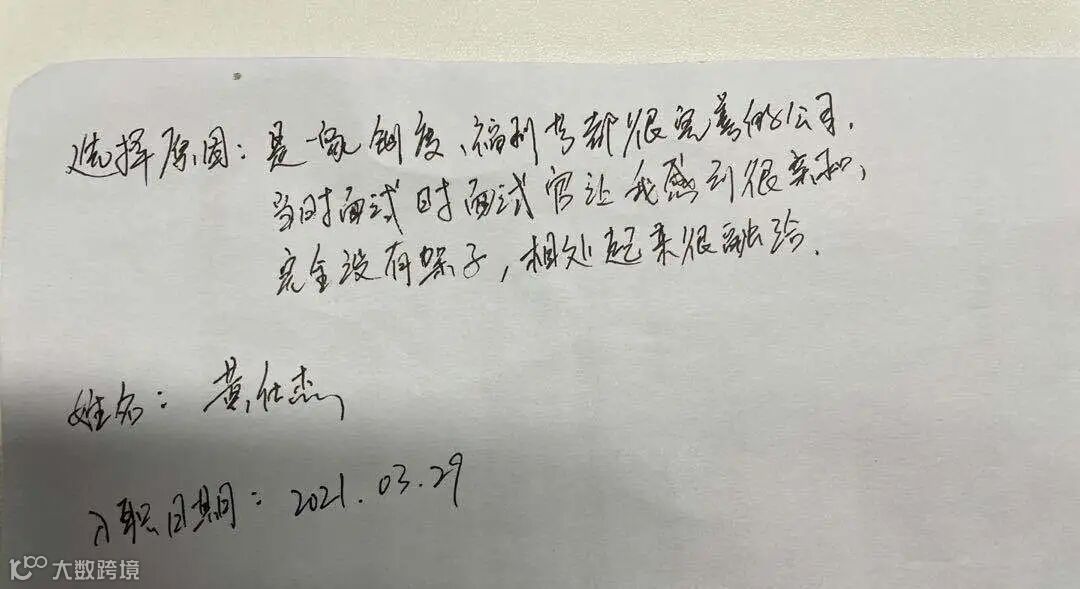 选择原因：是一家制度、福利等都很完善的公司.
当时面试时面试官让我感到很亲和,
完全没有架子，相处起来很融洽.
姓名：黄仕杰
入职日期：2021.03.29
大数跨境